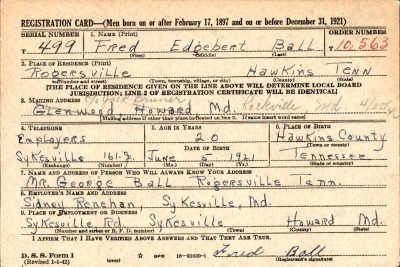 REGISTRATION CARD—(Men born on or after February 17, 1897 and on or before December 31, 1921)
SERIAL NUMBER 1. NAME (Print) ORDER NUMBER
T 499 Fred Edgebert Ball T 10,563
(First) (Middle) (Last)
2. PLACE OF RESIDENCE (Print)
Rogersville Hawkins Tenn
(Number and street) (Town, township, village, or city) (County) (State)
[THE PLACE OF RESIDENCE GIVEN ON THE LINE ABOVE WILL DETERMINE LOCAL BOARD
JURISDICTION; LINE 2 OF REGISTRATION CERTIFICATE WILL BE IDENTICAL]
3. MAILING ADDRESS
Glenwood, Howard Md. Rockville Md
[Mailing address if other than place indicated on line 2. If same insert word same]
4. TELEPHONE 5. AGE IN YEARS 6. PLACE OF BIRTH
Employers 20 Hawkins County
DATE OF BIRTH (Town or county)
Sykesville 161-J. June 5 1921 Tennessee
(Exchange) (Number) (Mo.) (Day) (Yr.) (State or country)
7. NAME AND ADDRESS OF PERSON WHO WILL ALWAYS KNOW YOUR ADDRESS
Mr. George Ball Rogersville Tenn.
8. EMPLOYER'S NAME AND ADDRESS
Sidney Renehan, Sykesville, Md.
9. PLACE OF EMPLOYMENT OR BUSINESS
Sykesville Rd. Sykesville Howard Md.
(Number and street or R. F. D. number) (Town) (County) (State)
I AFFIRM THAT I HAVE VERIFIED ABOVE ANSWERS AND THAT THEY ARE TRUE.
D. S. S. Form 1 Fred Ball
(Revised 1-5-42) (Registrant's signature)